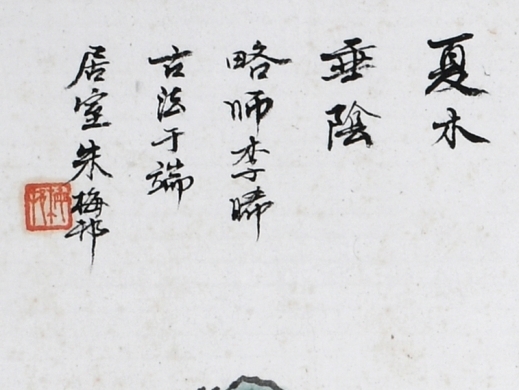 夏木
垂陰
略師李晞
古法于端
居室朱梅邨